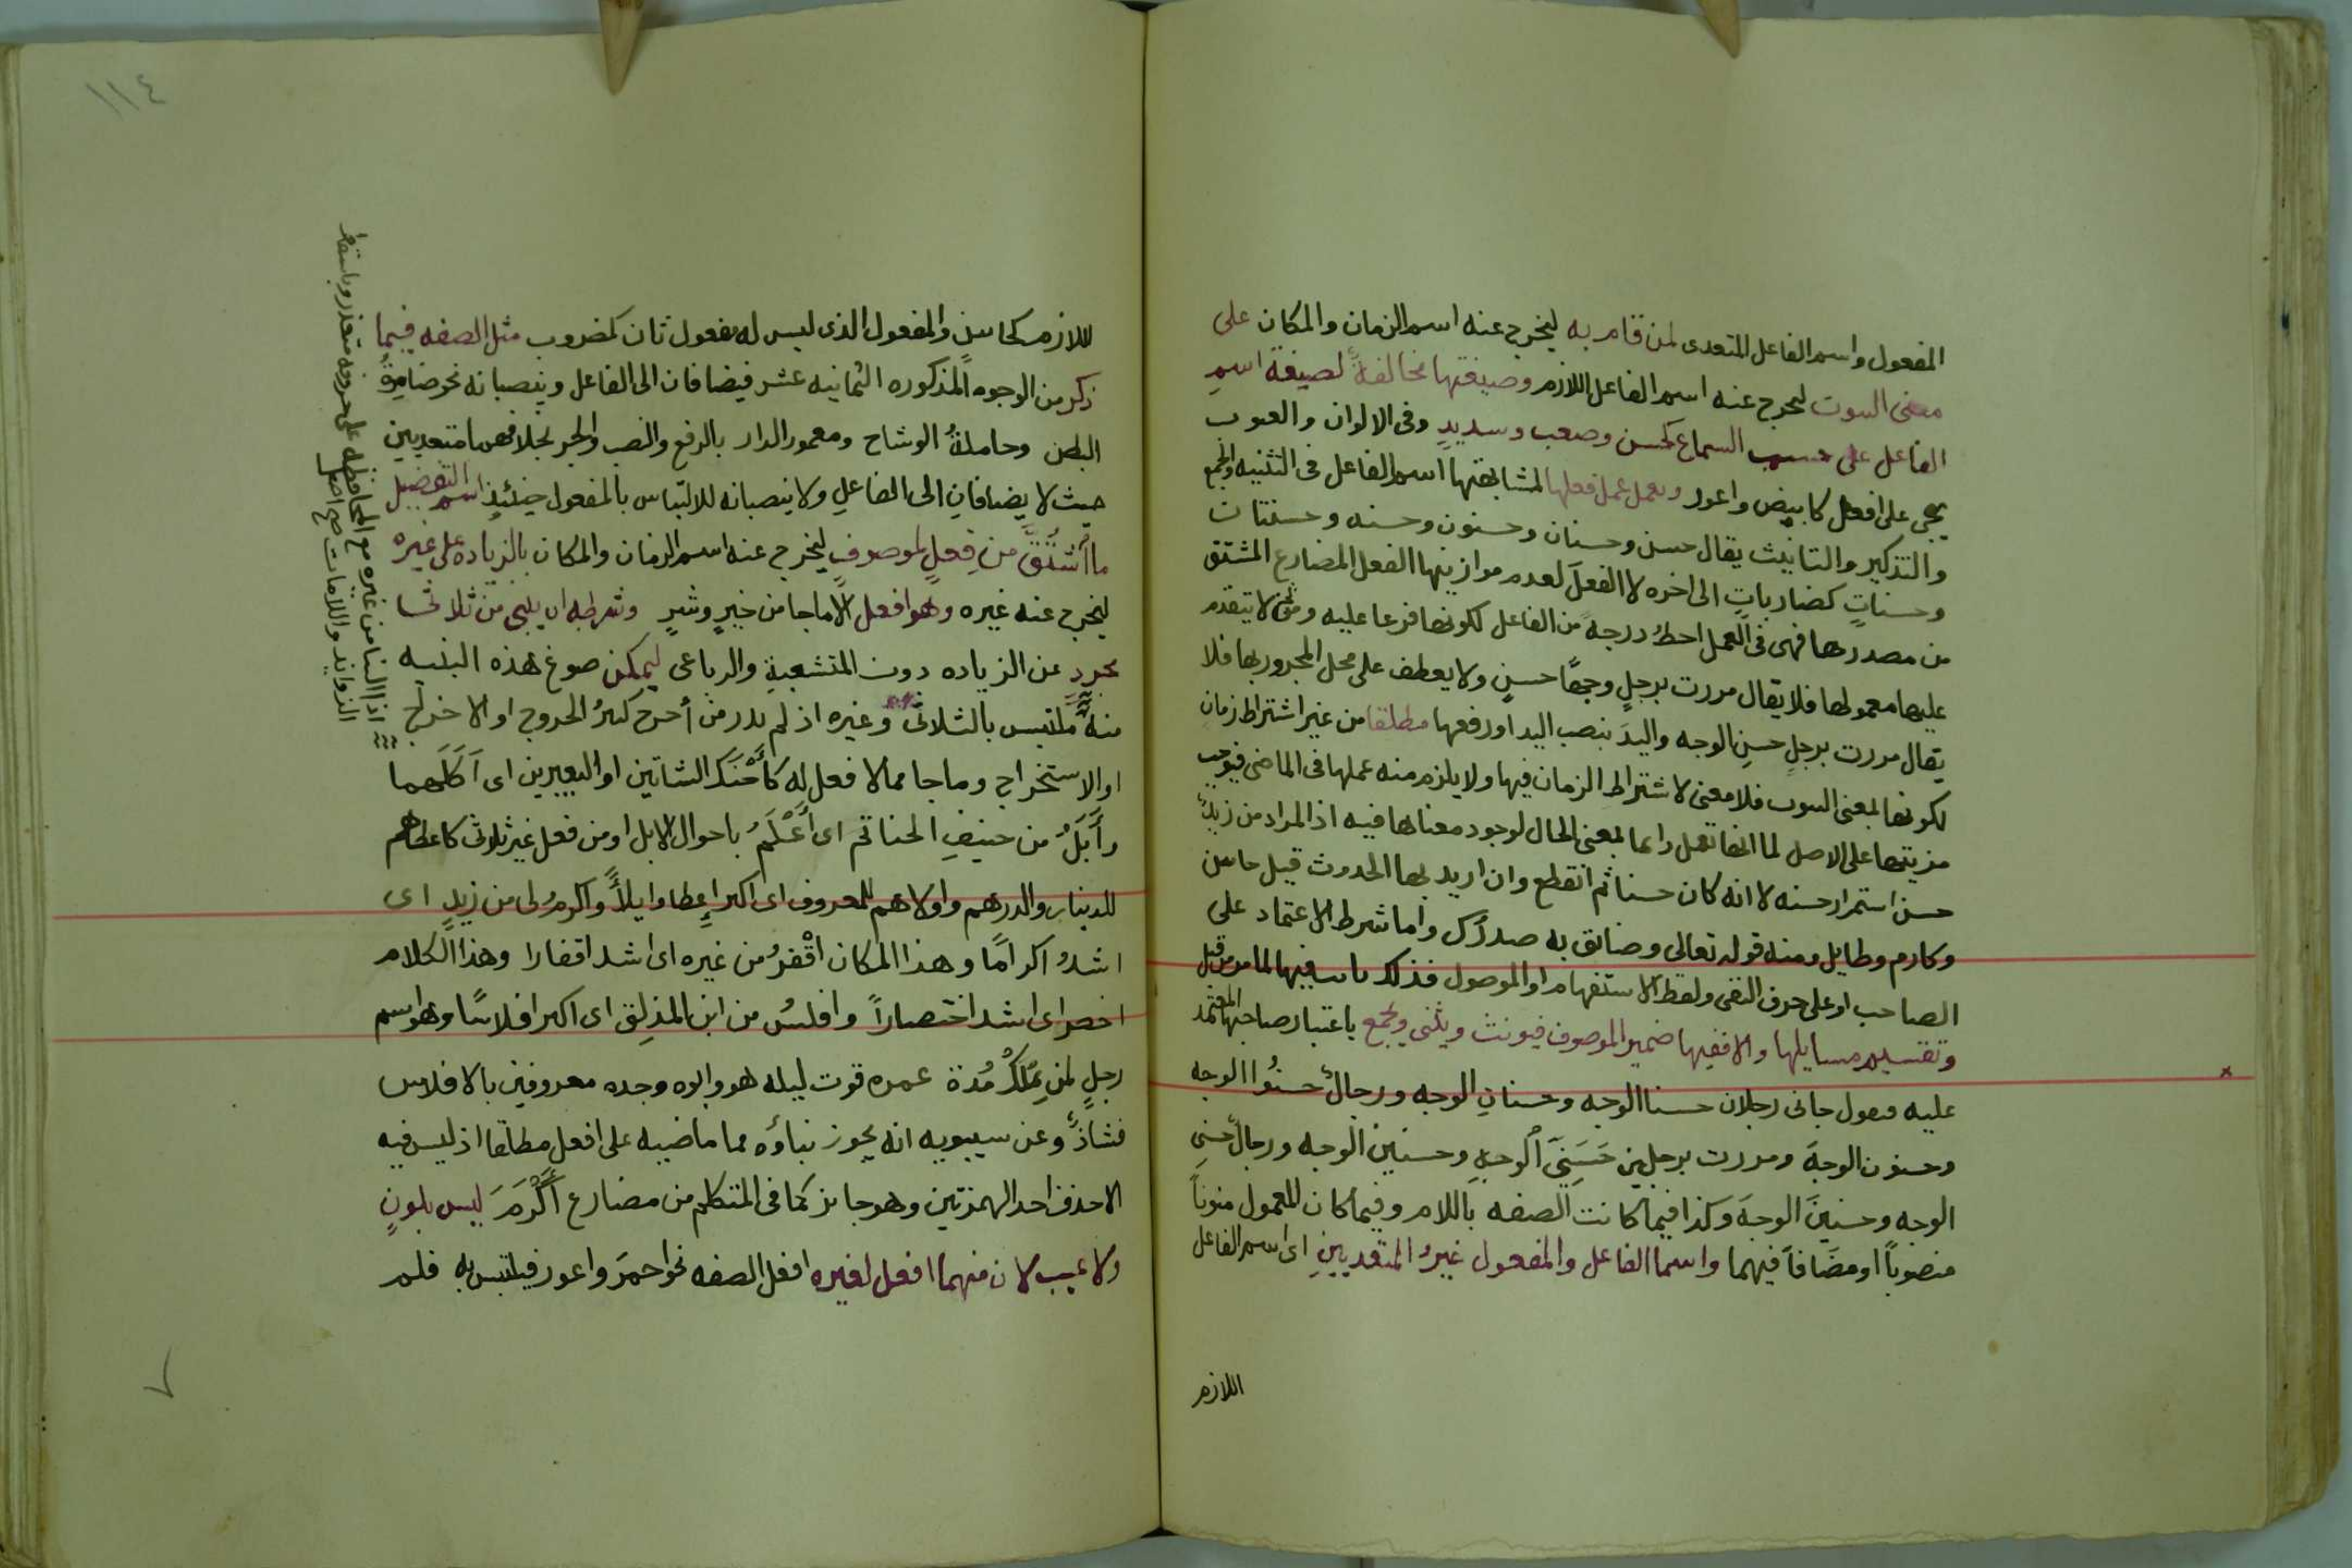 المفعول واسم الفاعل المتعدى لمن قام به ليخرج عنه اسم الزمان والمكان على
معنى الثبوت ليخرج عنه اسم الفاعل اللازم وصيغتها مخالفةٌ لصيغة اسمِ
الفاعل على حسب السماع كحسن وصعب وسديدٍ وفى الالوان والعيوب
يجى على افعل كابيض واعور وتعمل عمل فعلها لمشابهتها اسم الفاعل فى التثنيه والجمع
والتذكير والتانيث يقال حسن وحسنان وحسنون وحسنه وحسنتان
وحسناتٍ كضارباتٍ الى اخره لا الفعلَ لعدم موازينها الفعل المضارع المشتق
من مصدرها فهى فى العمل احطُّ درجةً من الفاعل لكونها فرعا عليه ومن ثم لا يتقدم
عليها معمولها فلا يقال مررت برجلٍ وجهًا حسنٍ ولا يعطف على محل المجرور بها فلا
يقال مررت برجلٍ حسنِ الوجه واليدَ بنصب اليد او رفعها مطلقا من غير اشتراط زمانٍ
لكونها بمعنى الثبوت فلا معنى لاشتراط الزمان فيها ولا يلزم منه عملها فى الماضى فيوجب
مزيتها على الاصل لما انها تعمل دايما بمعنى الحال لوجود معناها فيه اذ المراد من زيدٌ
حسن استمرار حسنه لا انه كان حسنا ثم انقطع وان اريد بها الحدوث قيل حاسن
وكارم وطايل ومنه قوله تعالى وضائق به صدرُك واما شرط الاعتماد على
الصاحب او على حرف النفى ولفظ الاستفهام او الموصول فذلك ثابت فيها لما مر من قبل
وتقسيم مسايلها والا ففيها ضمير الموصوف فيونث ويثنى ويجمع باعتبار صاحبها المعتمد
عليه فتقول جانى رجلان حسنا الوجه وحسنانِ الوجه ورجالٌ حسنُوا الوجه
وحسنون الوجهَ ومررت برجلين حَسَنَىِ الوجهِ وحسنين الوجه ورجالٍ حسنِى
الوجه وحسنينَ الوجهَ وكذا فيما كانت الصفه باللام وفيما كان للمعمول منوناً
منصوباً او مضَافاً فيهما واسما الفاعل والمفعول غيرُ المتعديينِ اى اسم الفاعل
اللازم
١١٤
اللازم كحاسن والمفعول الذى ليس له مفعول ثان كمضروب مثل الصفه فيما
ذكر من الوجوه المذكوره الثمانيه عشر فيضافان الى الفاعل وينصبانه نحو ضامرةُ
البطن وحاملةُ الوشاح ومعمور الدار بالرفع والنصب والجر بخلافهما متعديين
حيث لا يضافانِ الى الفاعلِ ولا ينصبانه للالتباس بالمفعول حينئذٍ اسم التفضيل
ما اُشْتُقَّ من فعلٍ لموصوفٍ ليخرج عنه اسم الزمان والمكان بالزياده على غيره
ليخرج عنه غيره وهو افعل الا ما جا من خيرٍ وشرٍ وشرطه ان يبنى من ثلاثى
مجردٍ عن الزياده دون المتشعبةِ والرباعى ليمكن صوغ هذه البنيه
منه ملتبس بالثلاثى وغيره اذ لم يدر من أخرج كثيرُ الخروج او الاخراج
او الاستخراج وما جا مما لا فعل له كأَحْنَكَ الشاتين او البعيرين اى اَكَلَهما
واَبَلُ من حنيفِ الحناتم اى اَعْلَمُ باحوال الابل او من فعل غير ثلاثى كاعطاهم
للدينار والدرهم واولاهم للمعروف اى اكثر اِعطا وايلاً واكرمُ لى من زيدٍ اى
اشدُ اكرامًا وهذا المكان اقْفَرُ من غيره اى اشد اقفارا وهذا الكلام
اخصر اى اشد اختصاراً وافلسُ من ابن المذلِق اى اكثر افلاسًا وهو اسم
رجلٍ لم يَمْلِكْ مُدة عمره قوت ليله هو وابوه وجده معروفين بالافلاس
فشاذٌّ وعن سيبويه انه يجوز بناؤه مما ماضيه على افعل مطلقا اذ ليس فيه
الا حذف احد الهمزتين وهو جايز كما فى المتكلم من مضارع أَكْرَمَ ليس بلونٍ
ولا عيب لان منهما افعل لغيره افعل الصفه نحو احمرَ واعور فيلتبس به فلم
اذ البنا من غيره مع المحافظه على حروفه متعذر وباسقاط
الزوايد واللامات صح اصل
٧